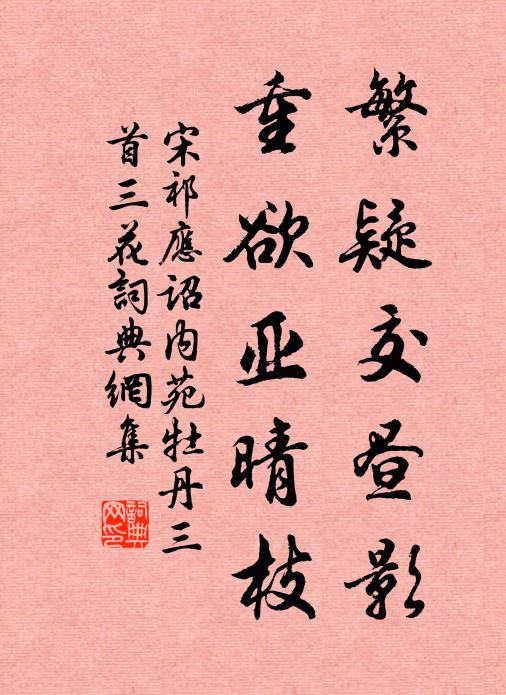 繁疑交昼影
重欲亚晴枝
宋祁應詔内苑牡丹三
首三花詞典網集
詞典网印